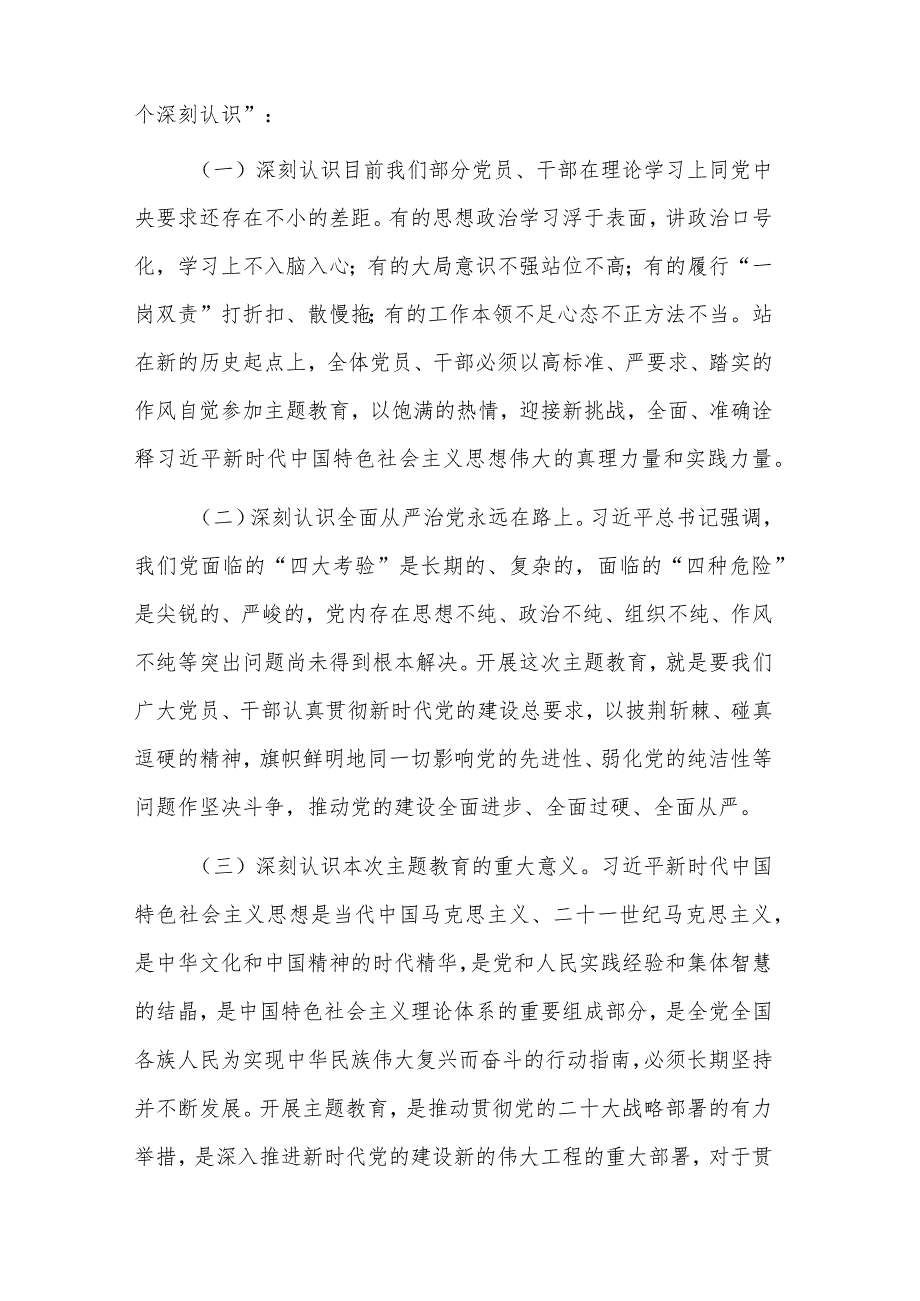 个深刻认识”：
（一）深刻认识目前我们部分党员、干部在理论学习上同党中
央要求还存在不小的差距。有的思想政治学习浮于表面，讲政治口号
化，学习上不入脑入心；有的大局意识不强站位不高；有的履行“一
岗双责”打折扣、散慢拖；有的工作本领不足心态不正方法不当。站
在新的历史起点上，全体党员、干部必须以高标准、严要求、踏实的
作风自觉参加主题教育，以饱满的热情，迎接新挑战，全面、准确诠
释习近平新时代中国特色社会主义思想伟大的真理力量和实践力量。
（二）深刻认识全面从严治党永远在路上。习近平总书记强调，
我们党面临的“四大考验”是长期的、复杂的，面临的“四种危险”
是尖锐的、严峻的，党内存在思想不纯、政治不纯、组织不纯、作风
不纯等突出问题尚未得到根本解决。开展这次主题教育，就是要我们
广大党员、干部认真贯彻新时代党的建设总要求，以披荆斩棘、碰真
逗硬的精神，旗帜鲜明地同一切影响党的先进性、弱化党的纯洁性等
问题作坚决斗争，推动党的建设全面进步、全面过硬、全面从严。
（三）深刻认识本次主题教育的重大意义。习近平新时代中国
特色社会主义思想是当代中国马克思主义、二十一世纪马克思主义，
是中华文化和中国精神的时代精华，是党和人民实践经验和集体智慧
的结晶，是中国特色社会主义理论体系的重要组成部分，是全党全国
各族人民为实现中华民族伟大复兴而奋斗的行动指南，必须长期坚持
并不断发展。开展主题教育，是推动贯彻党的二十大战略部署的有力
举措，是深入推进新时代党的建设新的伟大工程的重大部署，对于贯